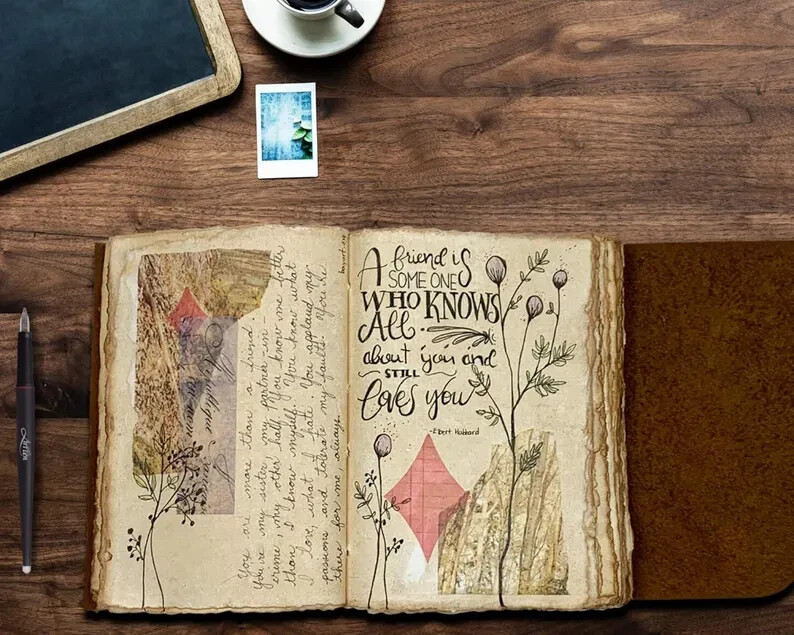 You are more than a friend.
You're my sister, my partner-in-
crime, my other half. You know me better
than I know myself. You know what
I love, what I hate. You applaud my
passions and tolerate my faults. You're
there for me, always.
A friend is
SOME ONE
WHO KNOWS
All
about you and
STILL
loves you
-Elbert Hubbard